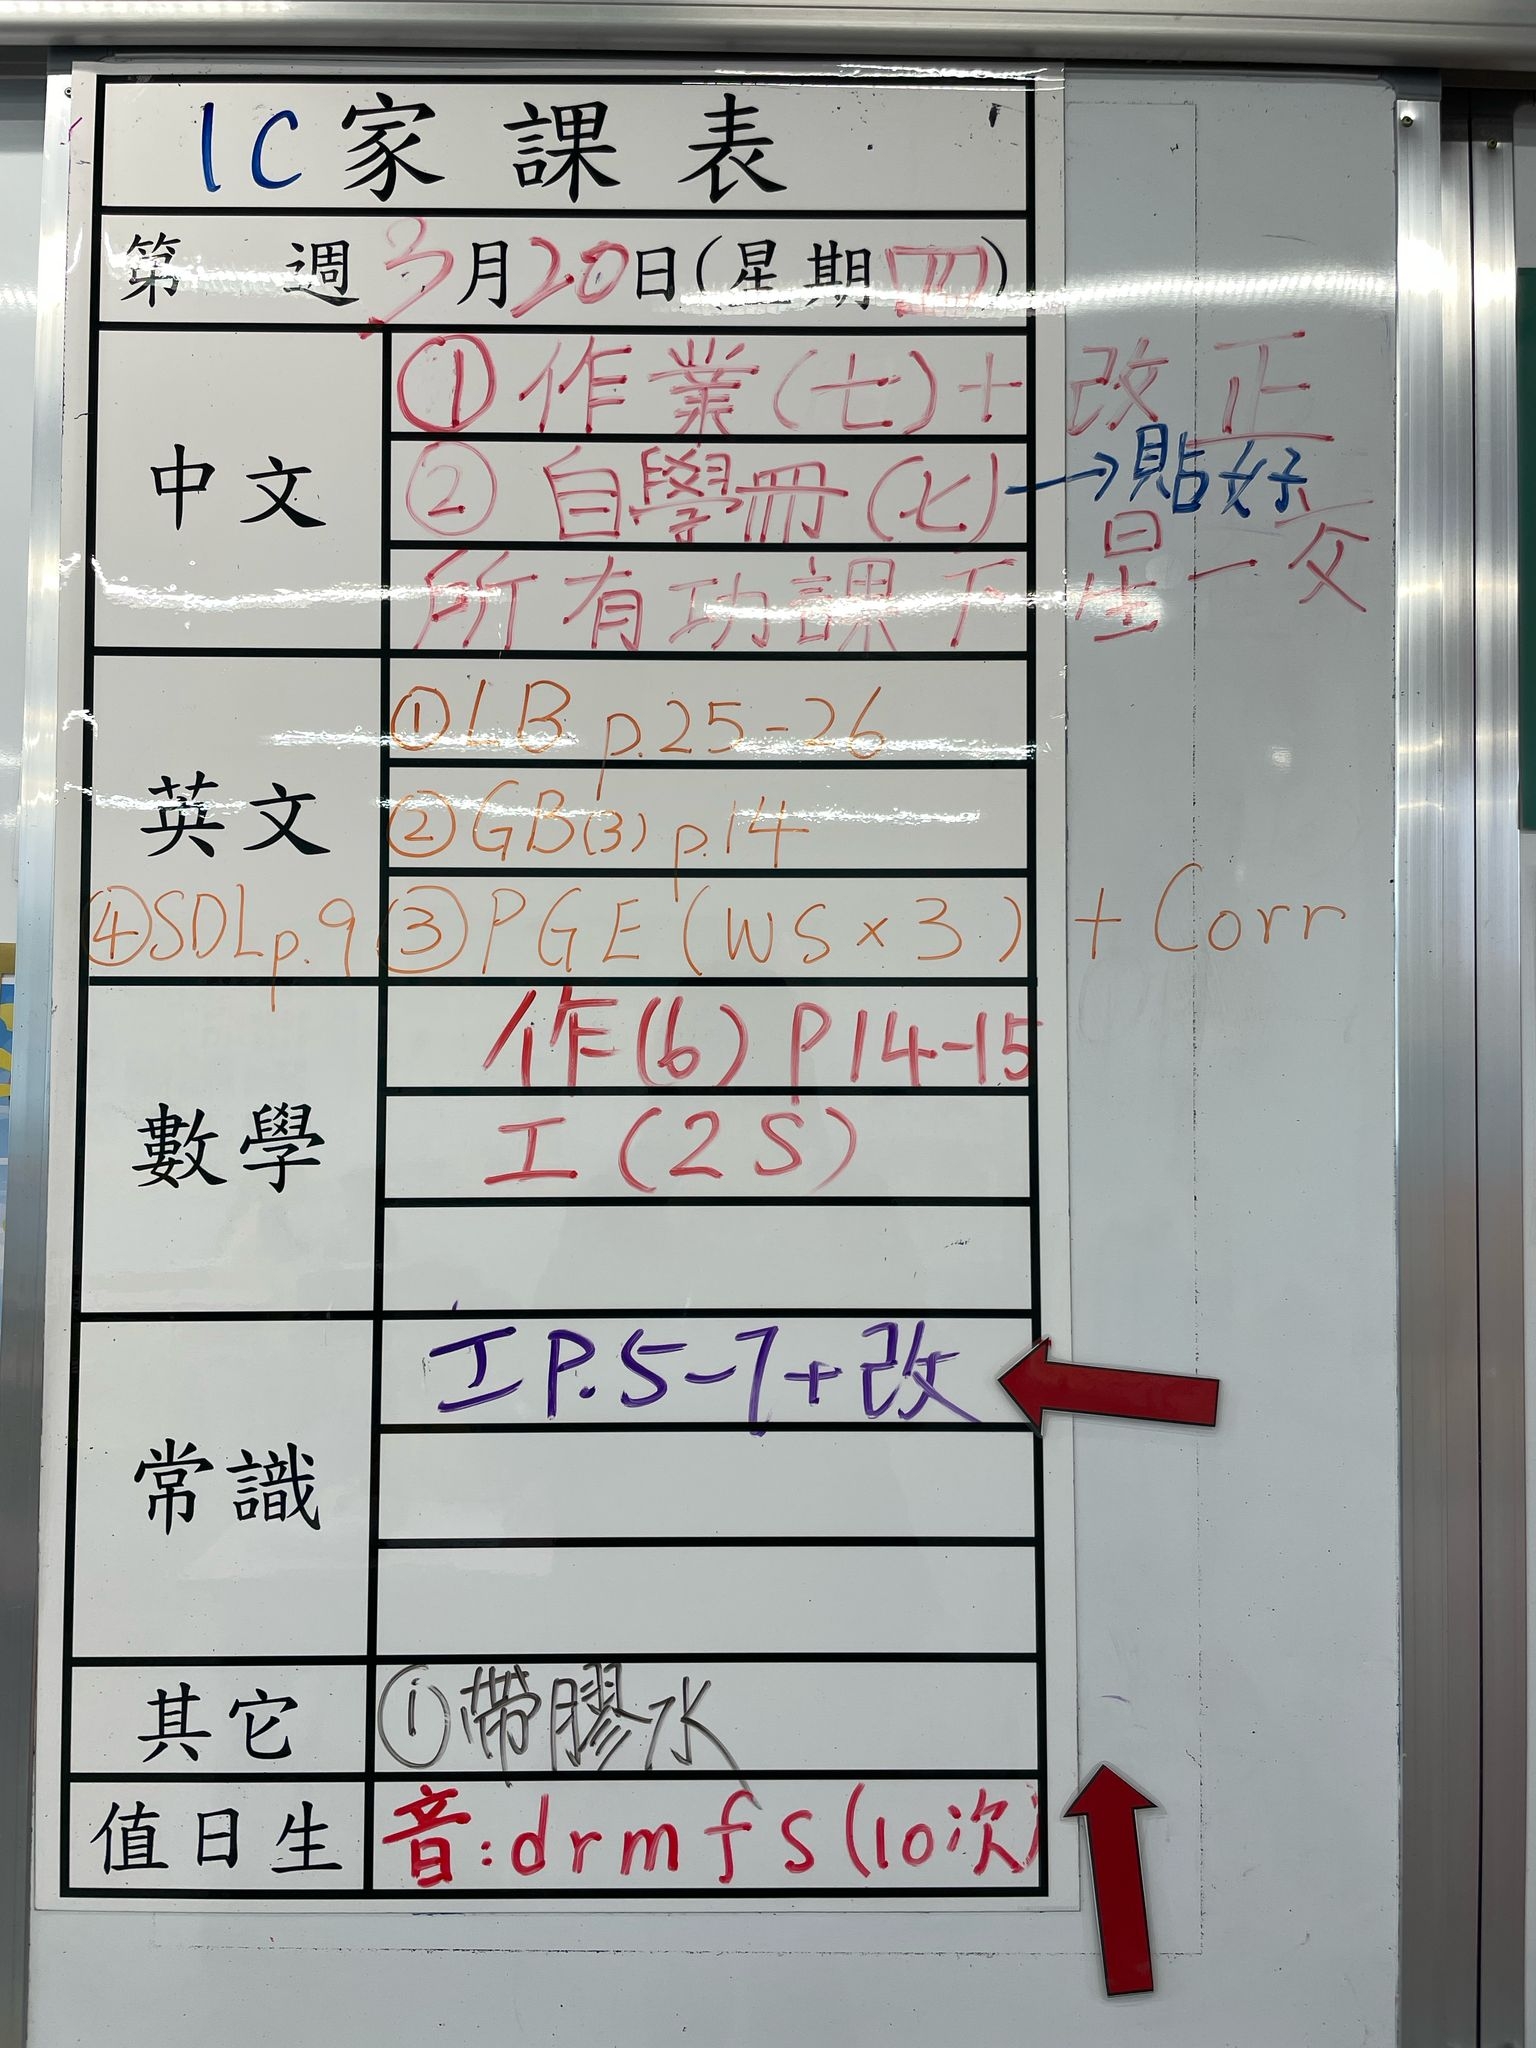 1C家課表
第 週 3月20日(星期四)
中文
①作業(七)+改正
②自學冊(七)→貼好
所有功課下星一交
英文
①LB p.25-26
②GB(3) p.14
③PGE(WS×3)+Corr
④SDL p.9
數學
作(6) P14-15
工(2S)
常識
工P.5-7+改
其它
①帶膠水
值日生
音:drmfs(10次)